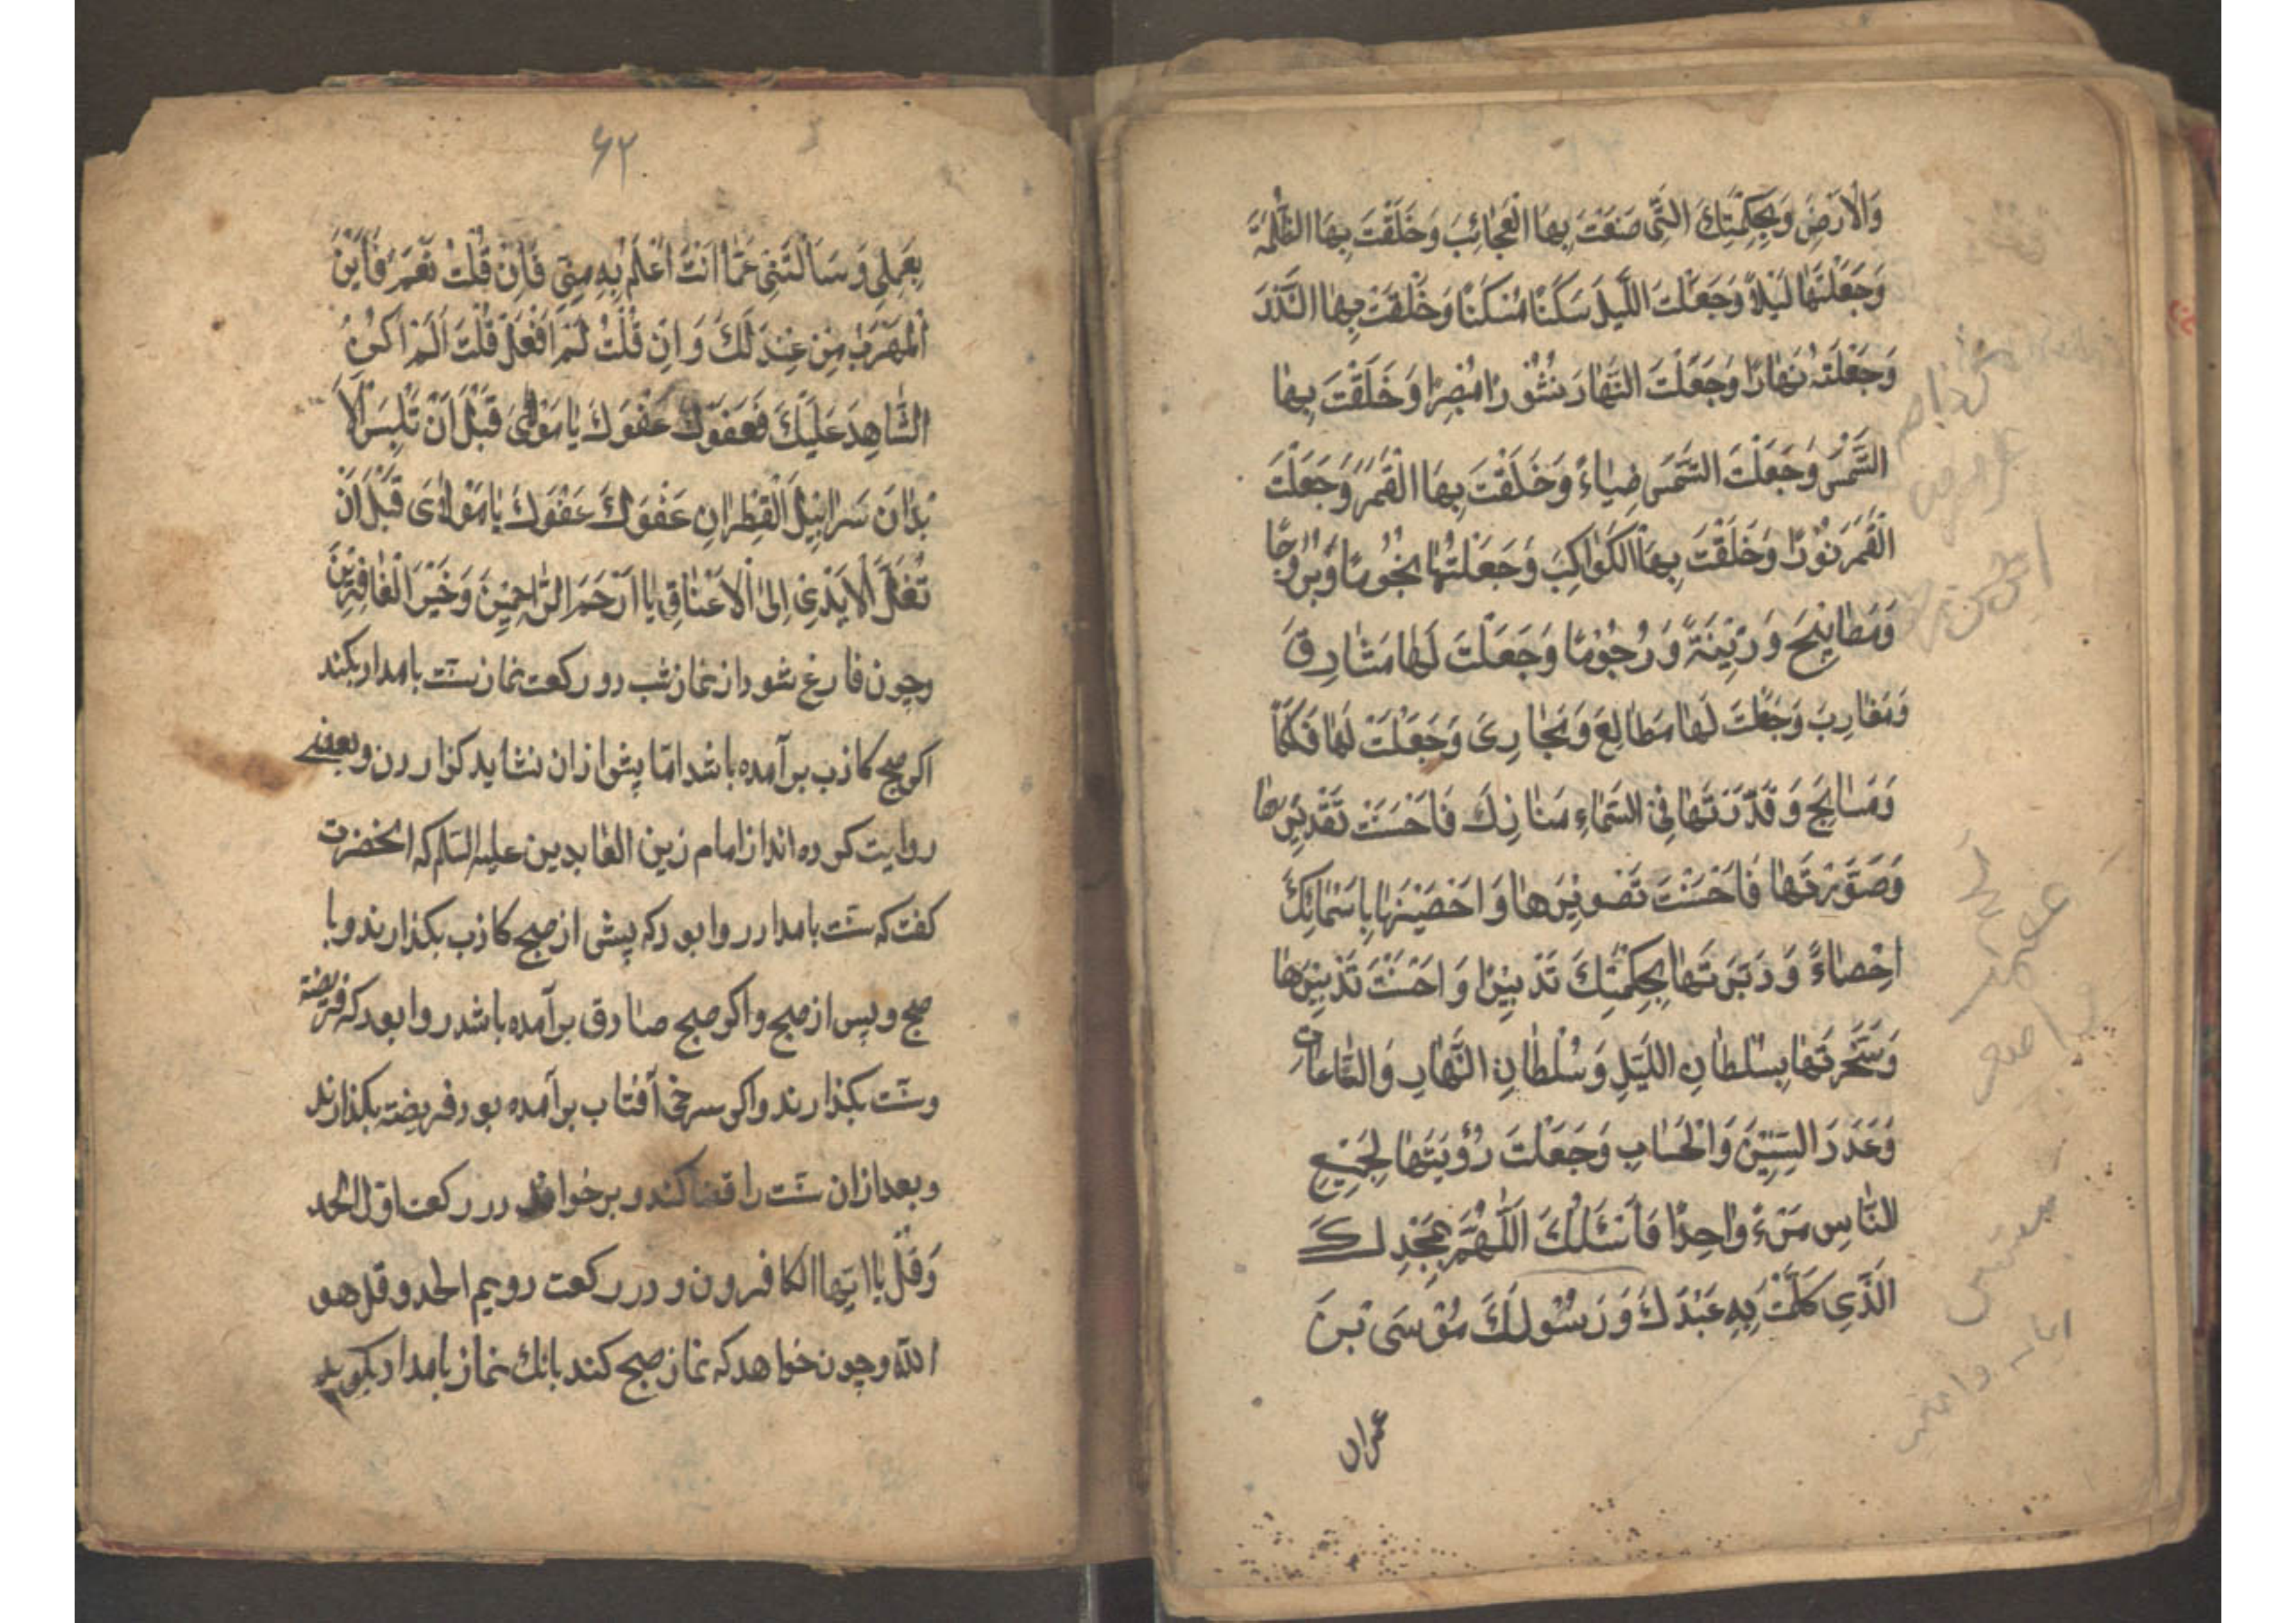 وَالْاَرْضِ وَبِحِكْمَتِكَ الَّتِى صَنَعْتَ بِهَا الْعَجَائِبَ وَخَلَقْتَ بِهَا الظُّلْمَةَ
وَجَعَلْتَهَا لَيْلاً وَجَعَلْتَ اللَّيْلَ سَكَنًا مَسْكَنًا وَخَلَقْتَ بِهَا النُّورَ
وَجَعَلْتَهُ نَهَارًا وَجَعَلْتَ النَّهَارَ نُشُورًا مُبْصِرًا وَخَلَقْتَ بِهَا
الشَّمْسَ وَجَعَلْتَ الشَّمْسَ ضِيَاءً وَخَلَقْتَ بِهَا الْقَمَرَ وَجَعَلْتَ
الْقَمَرَ نُورًا وَخَلَقْتَ بِهَا الْكَوَاكِبَ وَجَعَلْتَهَا نُجُومًا وَبُرُوجًا
وَمَصَابِيحَ وَزِيْنَةً وَرُجُوْمًا وَجَعَلْتَ لَهَا مَشَارِقَ
وَمَغَارِبَ وَجَعَلْتَ لَهَا مَطَالِعَ وَمَجَارِىَ وَجَعَلْتَ لَهَا فَلَكًا
وَمَسَابِحَ وَقَدَّرْتَهَا فِى السَّمَاءِ مَنَازِلَ فَاَحْسَنْتَ تَقْدِيْرَهَا
وَصَوَّرْتَهَا فَاَحْسَنْتَ تَصْوِيْرَهَا وَاَحْصَيْتَهَا بِاَسْمَائِكَ
اِحْصَاءً وَدَبَّرْتَهَا بِحِكْمَتِكَ تَدْبِيْرًا وَاَحْسَنْتَ تَدْبِيْرَهَا
وَسَخَّرْتَهَا بِسُلْطَانِ اللَّيْلِ وَسُلْطَانِ النَّهَارِ وَالسَّاعَاتِ
وَعَدَدَ السِّنِيْنَ وَالْحِسَابِ وَجَعَلْتَ رُؤْيَتَهَا لِجَمِيْعِ
النَّاسِ مَرْءً وَاحِدًا فَاَسْئَلُكَ اللّٰهُمَّ بِمَجْدِكَ
الَّذِى كَلَّمْتَ بِهِ عَبْدَكَ وَرَسُوْلَكَ مُوْسَى بْنَ
عمران
۶۲
بِعَمَلِى وَسَاَلْتَنِى عَمَّا اَنْتَ اَعْلَمُ بِهِ مِنِّى فَاِنْ قُلْتُ نَعَمْ فَاَيْنَ
الْمَهْرَبُ مِنْ عَدْلِكَ وَاِنْ قُلْتُ لَمْ اَفْعَلْ قُلْتَ اَلَمْ اَكُنِ
الشَّاهِدَ عَلَيْكَ فَعَفْوَكَ عَفْوَكَ يَا مَوْلَاىَ قَبْلَ اَنْ تُلْبَسَ الْاَ
بْدَانَ سَرَابِيْلَ الْقَطِرَانِ عَفْوَكَ عَفْوَكَ يَا مَوْلَاىَ قَبْلَ اَنْ
تُغَلَّ الْاَيْدِىْ اِلَى الْاَعْنَاقِ يَا اَرْحَمَ الرَّاحِمِيْنَ وَخَيْرَ الْغَافِرِيْنَ
وچون فارغ شود از نماز شب دو ركعت نماز سنّت بامداد بكند
اكر صبح كاذب بر آمده باشد امّا پيش از آن نشايد كزاردن و بعضى
روايت كرده اند از امام زين العابدين عليه السلم كه انحضرت
كفت كه سنّت بامداد روا بود كه پيش از صبح كاذب بكذارند و با
صبح و پس از صبح و اكر صبح صادق بر آمده باشد روا بود كه فريضه
و سنّت بكذارند و اكر سرخى آفتاب بر آمده بود فريضه بكذارند
و بعد از آن سنّت را قضا كند و بر خواند در ركعت اوّل الحمد
وَقُلْ يَا اَيُّهَا الكافرون و در ركعت دويم الحمد و قل هو
اللّه و چون خواهد كه نماز صبح كند بانك نماز بامداد بكويد